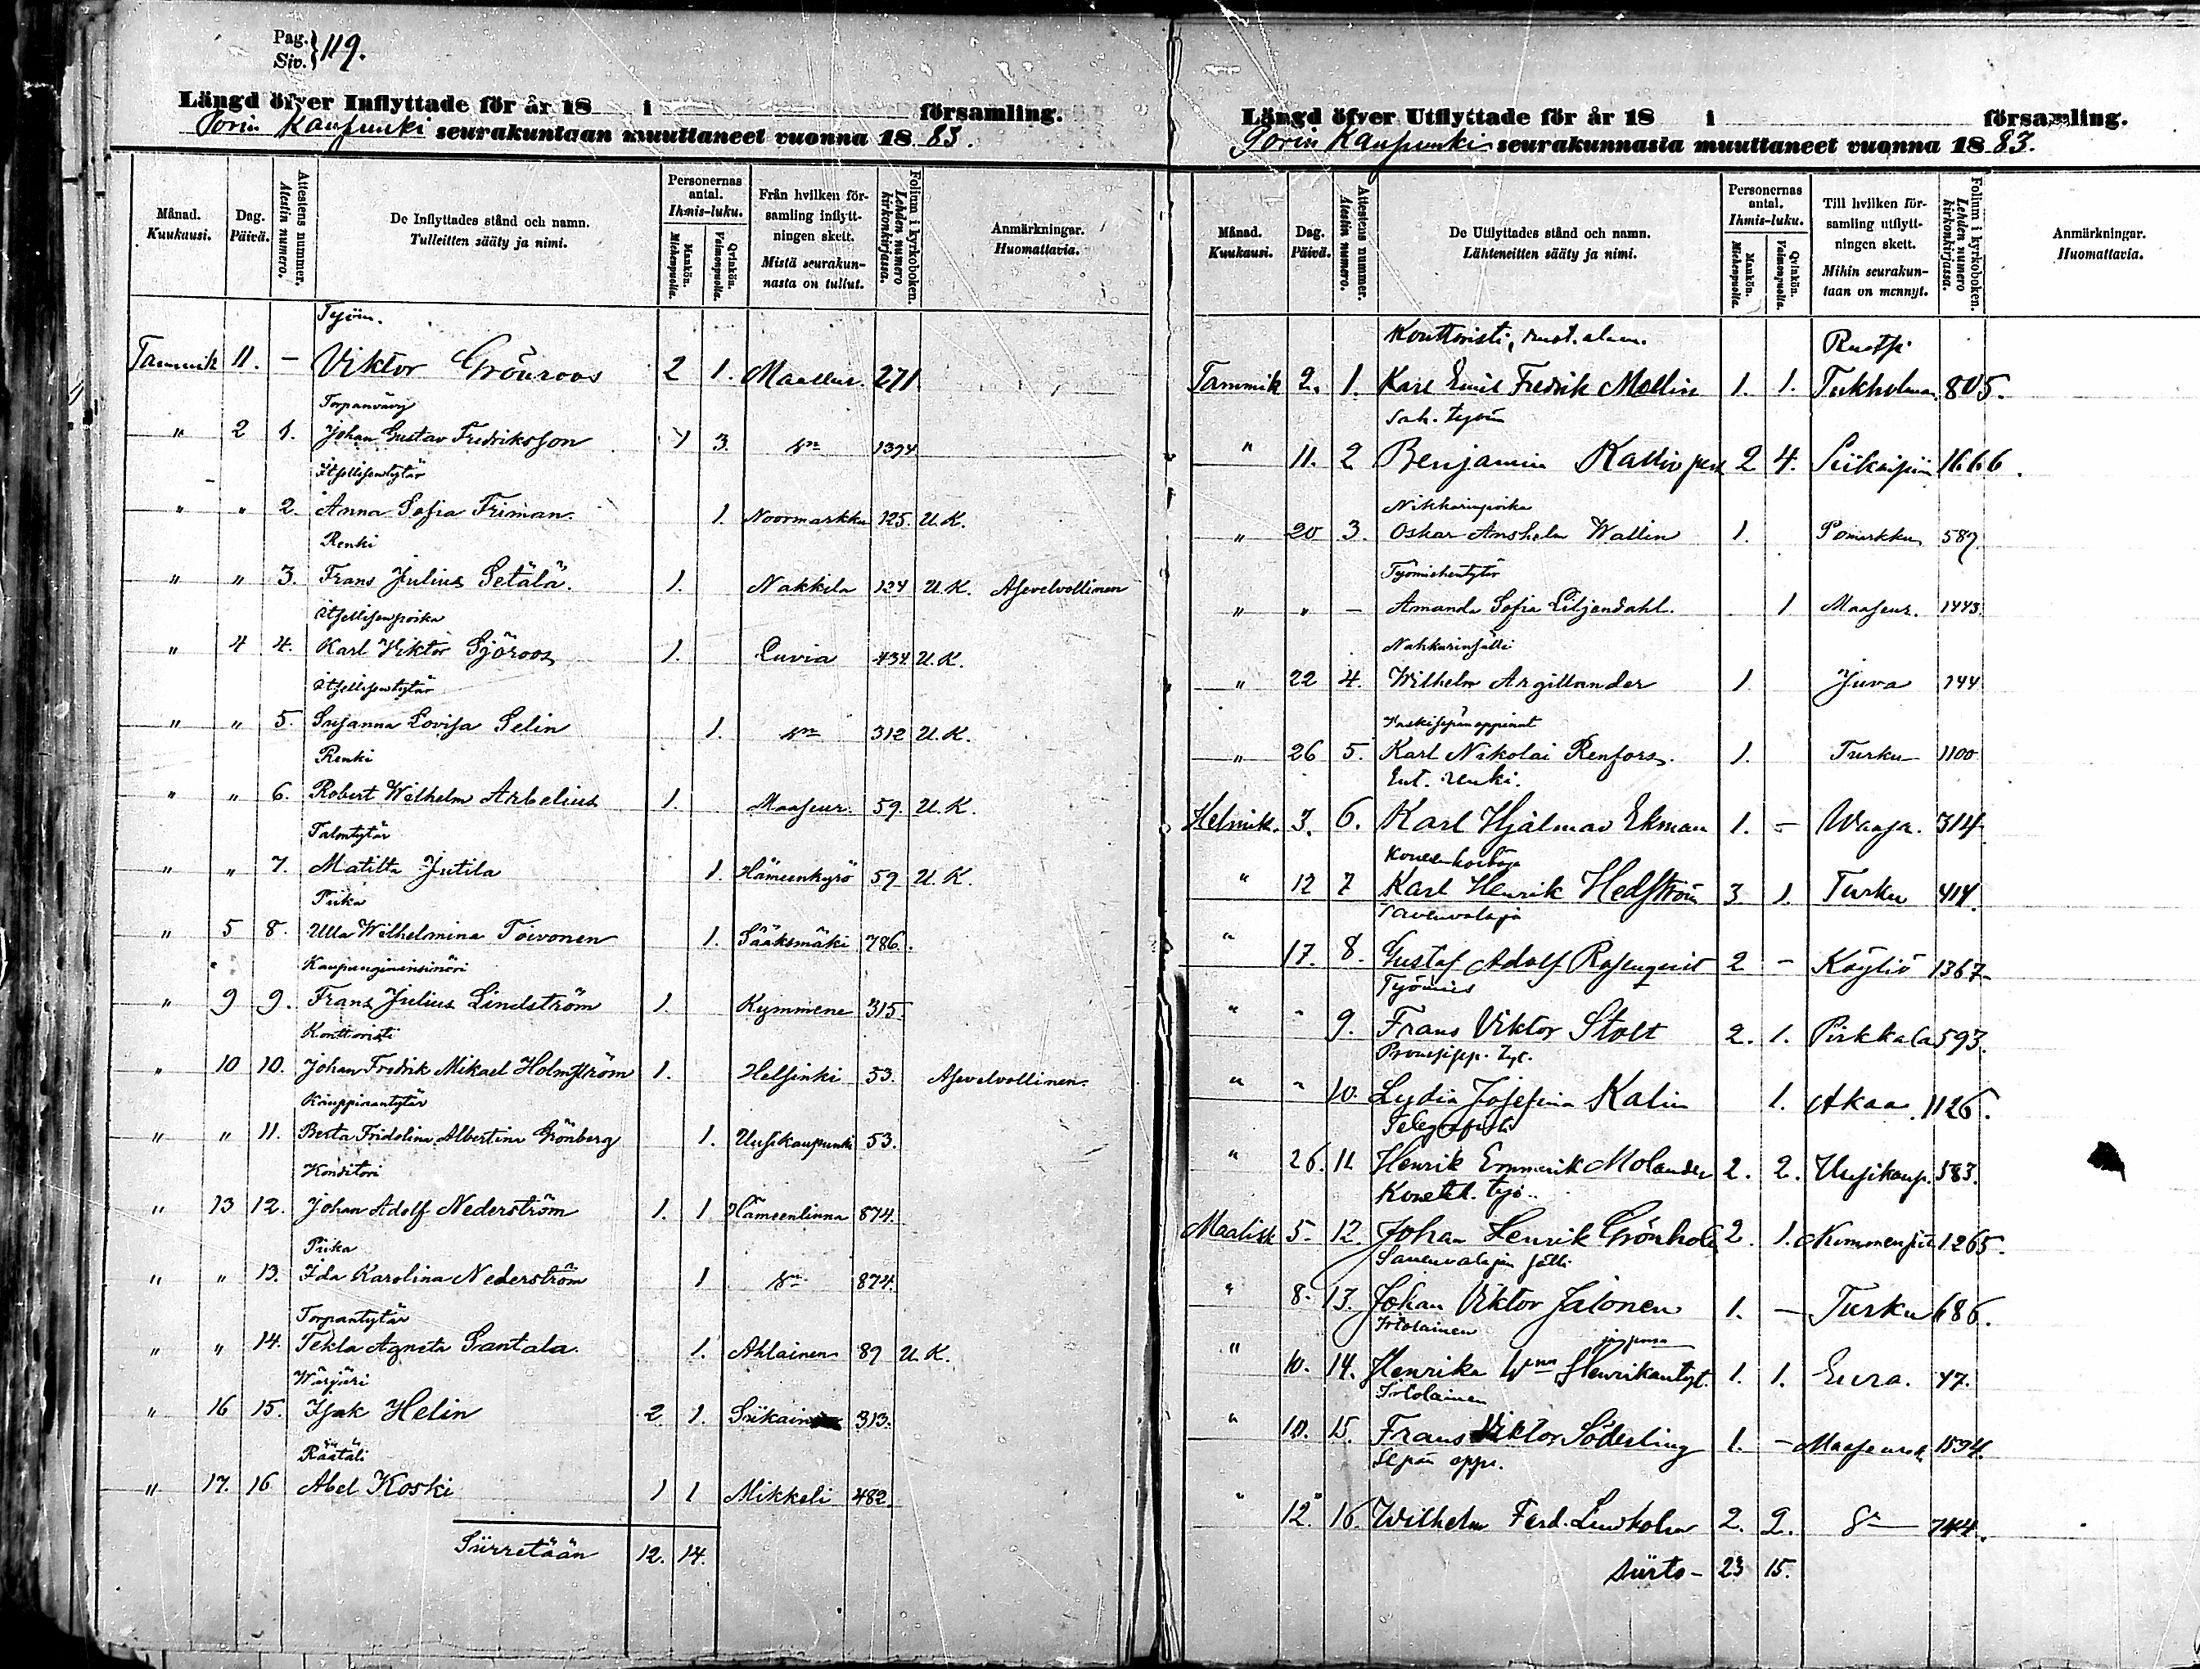 Pag.
Siv. } 119.
Längd öfver Inflyttade för år 18 i församling.
Porin Kaupunki seurakuntaan muuttaneet vuonna 1883.
Månad. Kuukausi.
Dag. Päivä.
Attestens nummer. Atestin numero.
De Inflyttades stånd och namn. Tulleitten sääty ja nimi.
Personernas antal. Ihmis-luku.
Mankön. Miehenpuolia.
Qvinkön. Vaimonpuolia.
Från hvilken församling inflyttningen skett. Mistä seurakunnasta on tullut.
Folium i kyrkoboken. Lehden numero kirkonkirjassa.
Anmärkningar. Huomattavia.
Työm.
Tammik 11. — Viktor Grönroos 2 1. Maaseur. 271
Torpanvävy
" 2 1. Johan Gustav Fredriksson 1 3. Sn 1394
Itsellisentytär
" " 2. Anna Sofia Friman. 1. Noormarkku 125. U.K.
Renki
" " 3. Frans Julius Setälä. 1. Nakkila 124 U.K. Asevelvollinen
Itsellisenpoika
" 4 4. Karl Viktor Sjöroos 1. Luvia 434 U.K.
Itsellisentytär
" " 5. Susanna Lovisa Selin 1. Sn 312 U.K.
Renki
" " 6. Robert Wilhelm Arbelius 1. Maaseur. 59. U.K.
Talontytär
" " 7. Matilta Jutila 1. Hämeenkyrö 59 U.K.
Piika
" 5 8. Ulla Wilhelmina Toivonen 1. Sääksmäki 786.
Kaupungininsinöri
" 9 9. Frans Julius Lindström 1. Kymmene 315.
Konttoristi
" 10 10. Johan Fredrik Mikael Holmström 1. Helsinki 53. Asevelvollinen.
Kauppiaantytär
" " 11. Berta Fridolina Albertina Grönberg 1. Uusikaupunki 53.
Konditori
" 13 12. Johan Adolf Nederström 1. 1 Hämeenlinna 874.
Piika
" " 13. Ida Karolina Nederström 1 Sn 874.
Torpantytär
" " 14. Tekla Agneta Santala 1. Ahlainen 89 U.K.
Wärjäri
" 16 15. Isak Helin 2 1. Siikainen 313.
Räätäli
" 17. 16 Abel Koski 1 1 Mikkeli 482.
Siirretään 12. 14.
Längd öfver Utflyttade för år 18 i församling.
Porin Kaupunki seurakunnasta muuttaneet vuonna 1883.
Månad. Kuukausi.
Dag. Päivä.
Attestens nummer. Atestin numero.
De Utflyttades stånd och namn. Lähteneitten sääty ja nimi.
Personernas antal. Ihmis-luku.
Mankön. Miehenpuolia.
Qvinkön. Vaimonpuolia.
Till hvilken församling utflyttningen skett. Mihin seurakuntaan on mennyt.
Folium i kyrkoboken. Lehden numero kirkonkirjassa.
Anmärkningar. Huomattavia.
Konttoristi, ruot. alam. Ruotsi
Tammik 2. 1. Karl Emil Fredrik Mellin 1. 1. Tukholma 805.
Sah. työm
" 11. 2 Benjamin Kallio 2 4. 1666.
Nikkarinpoika
" 20 3. Oskar Anshelm Wallin 1. Pomarkku 589.
Työmiehentytär
" " — Amanda Sofia Liljendahl. 1 Maaseur. 1443.
Nahkurinsälli
" 22 4. Wilhelm Argillander 1 Juva 144
Vaskisepänoppinut
" 26 5. Karl Nikolai Renfors. 1. Turku 1100
Ent. renki.
Helmik. 3. 6. Karl Hjalmar Ekman 1. — Waasa. 314.
Koneenhoitaja
" 12 7 Karl Henrik Hedström 3 1. Turku 414.
Savenvalaja
" 17. 8. Gustaf Adolf Rosenqvist 2 — Köyliö 1367
Työmies
" " 9. Frans Viktor Stolt 2. 1. Pirkkala 593.
tyt.
" " 10. Lydia Josefina Kalin 1. Akaa 1126.
Telegrafisti
" 26. 11 Henrik Emmerik Molander 2. 2. Uusikaup. 583.
Koneteh. työ.
Maalisk 5. 12. Johan Henrik Grönholm 2. 1. 1265.
Savenvalajan sälli
" 8. 13. Johan Viktor Jalonen 1. — Turku 686.
Irtolainen
" 10. 14. Henrika Wna Henrikantyt. 1. 1. Eura. 47.
Irtolainen
" 10. 15. Frans Viktor Söderling 1. — Maaseurak 1594.
Sepän opp.
" 12 16. Wilhelm Ferd. Lindholm 2. 2. Sn 744.
Siirto — 23 15.